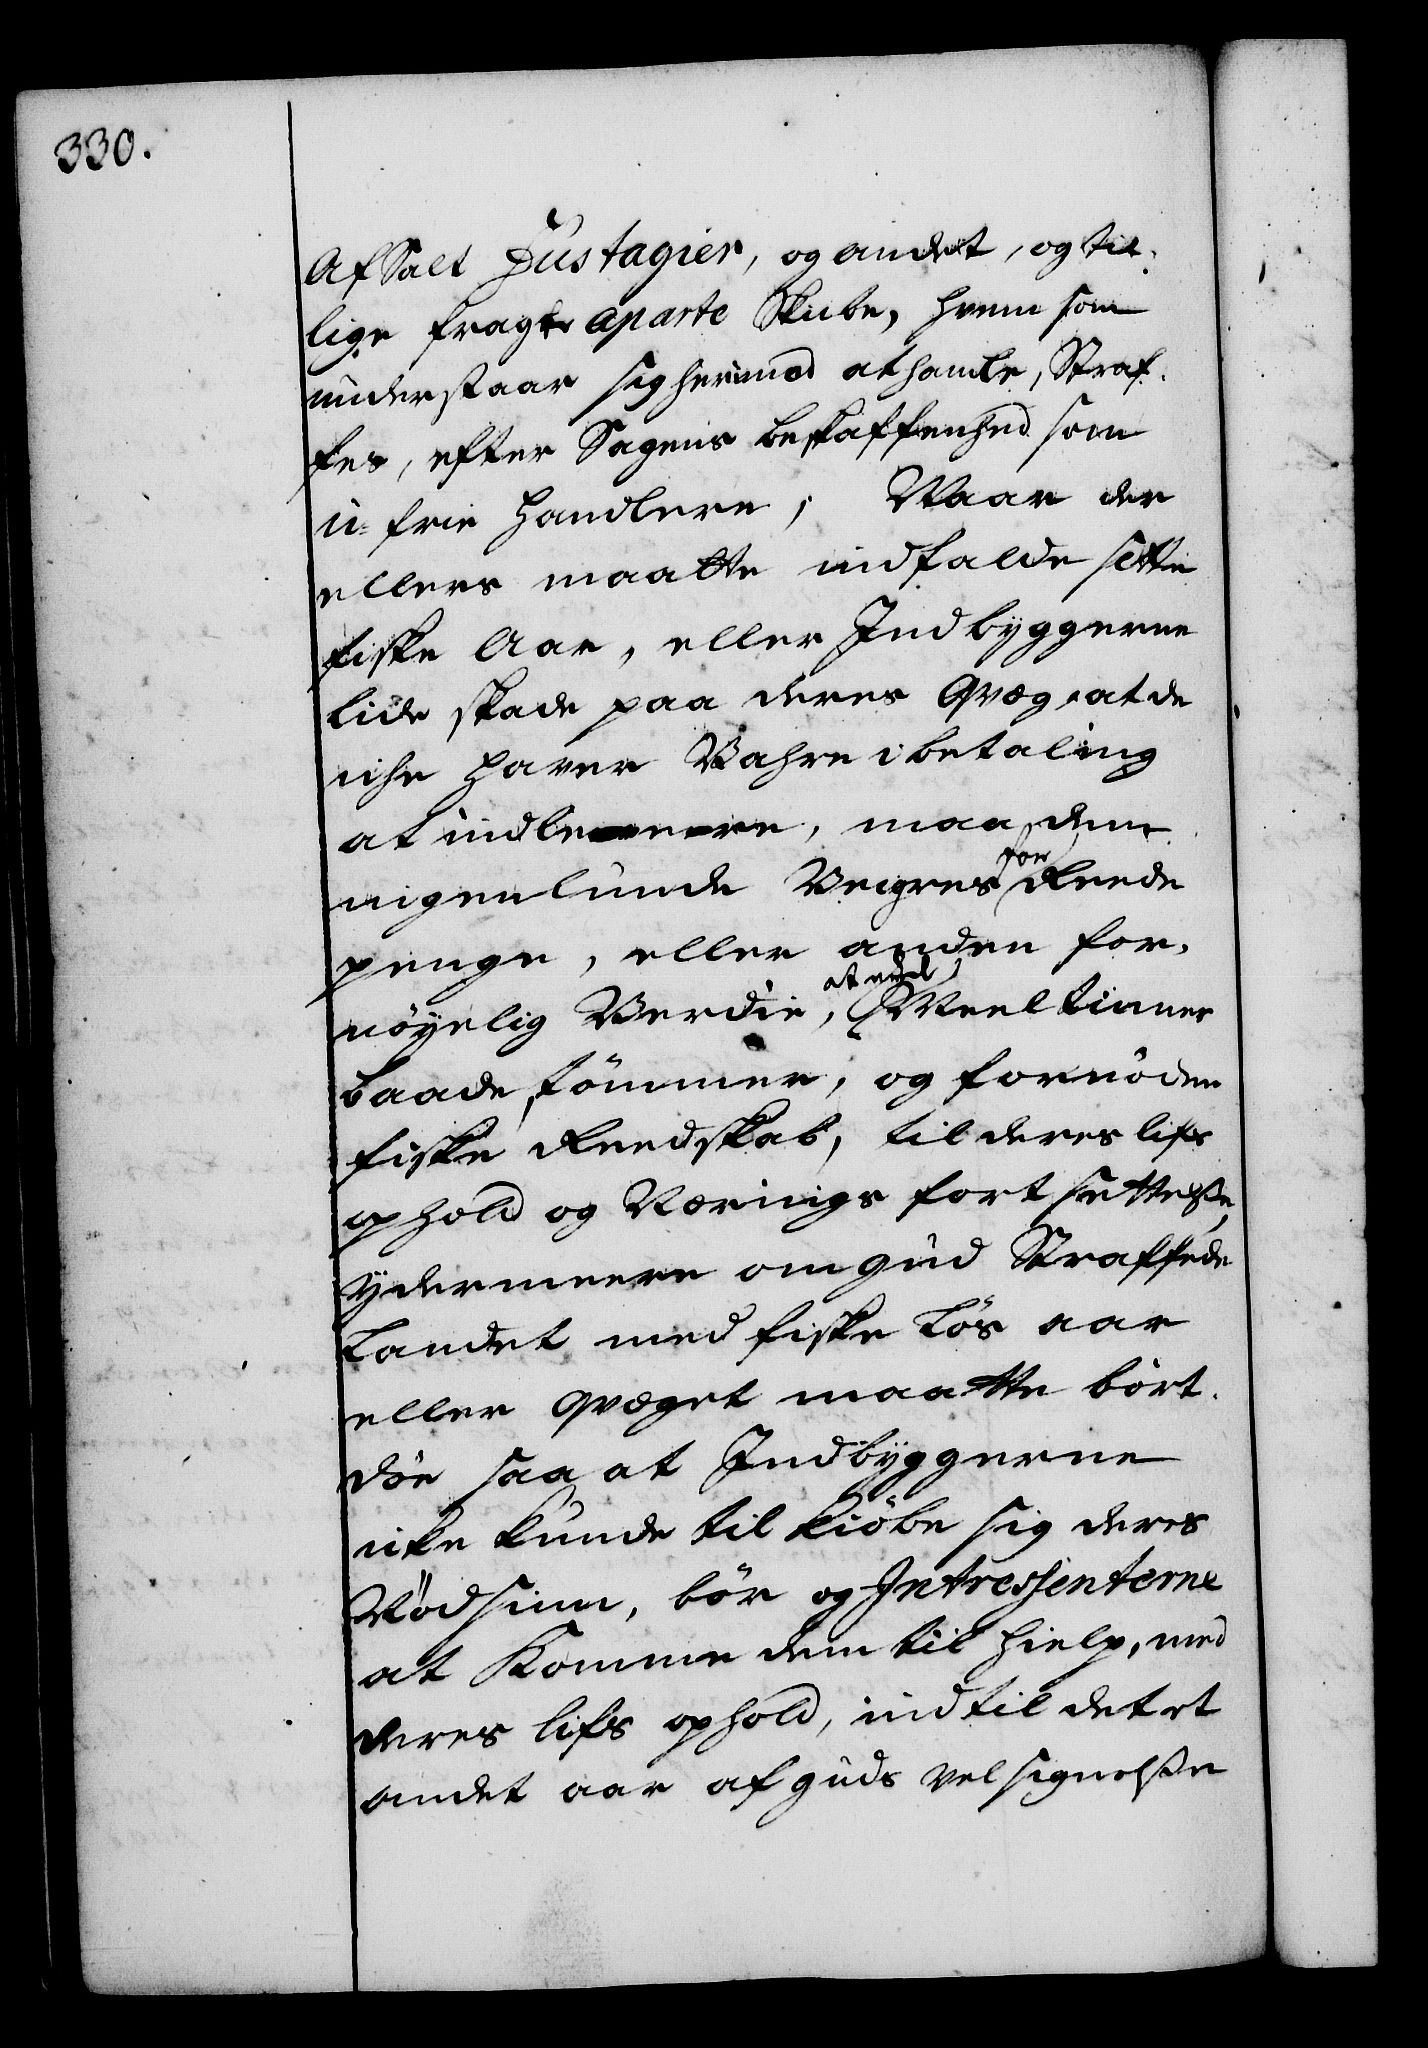 330.
Af Salt Fustagier, og andet, og til-
lige fragte aparte Skibe, hvem som
understaar sig herimod at handle, Straf-
fes, efter Sagens beskaffenhed som
u-frie handlere; Naar der
ellers maatte indfalde slette
fiske Aar, eller Indbyggerne
lide skade paa deres Qvæg, at de
iche haver Vahre i betaling
at indlevere, maa dem
ingenlunde Veigres for Reede
penge, eller anden for-
nöyelig Verdie, Meel tinner
baade, tömmer, og fornöden
fiske Reedskab, til deres lifs
ophold og Nærings fortsettelsse,
ydermeere om gud Straffede
Landet med fiske Lös aar
eller qvæget maatte bort-
döe saa at Indbyggerne
icke kunde til kiöbe sig deres
Nödsinn, bör og Intressenterne
at Komme dem til hielp, med
deres lifs ophold, indtil det et
andet aar af guds velsignelsse